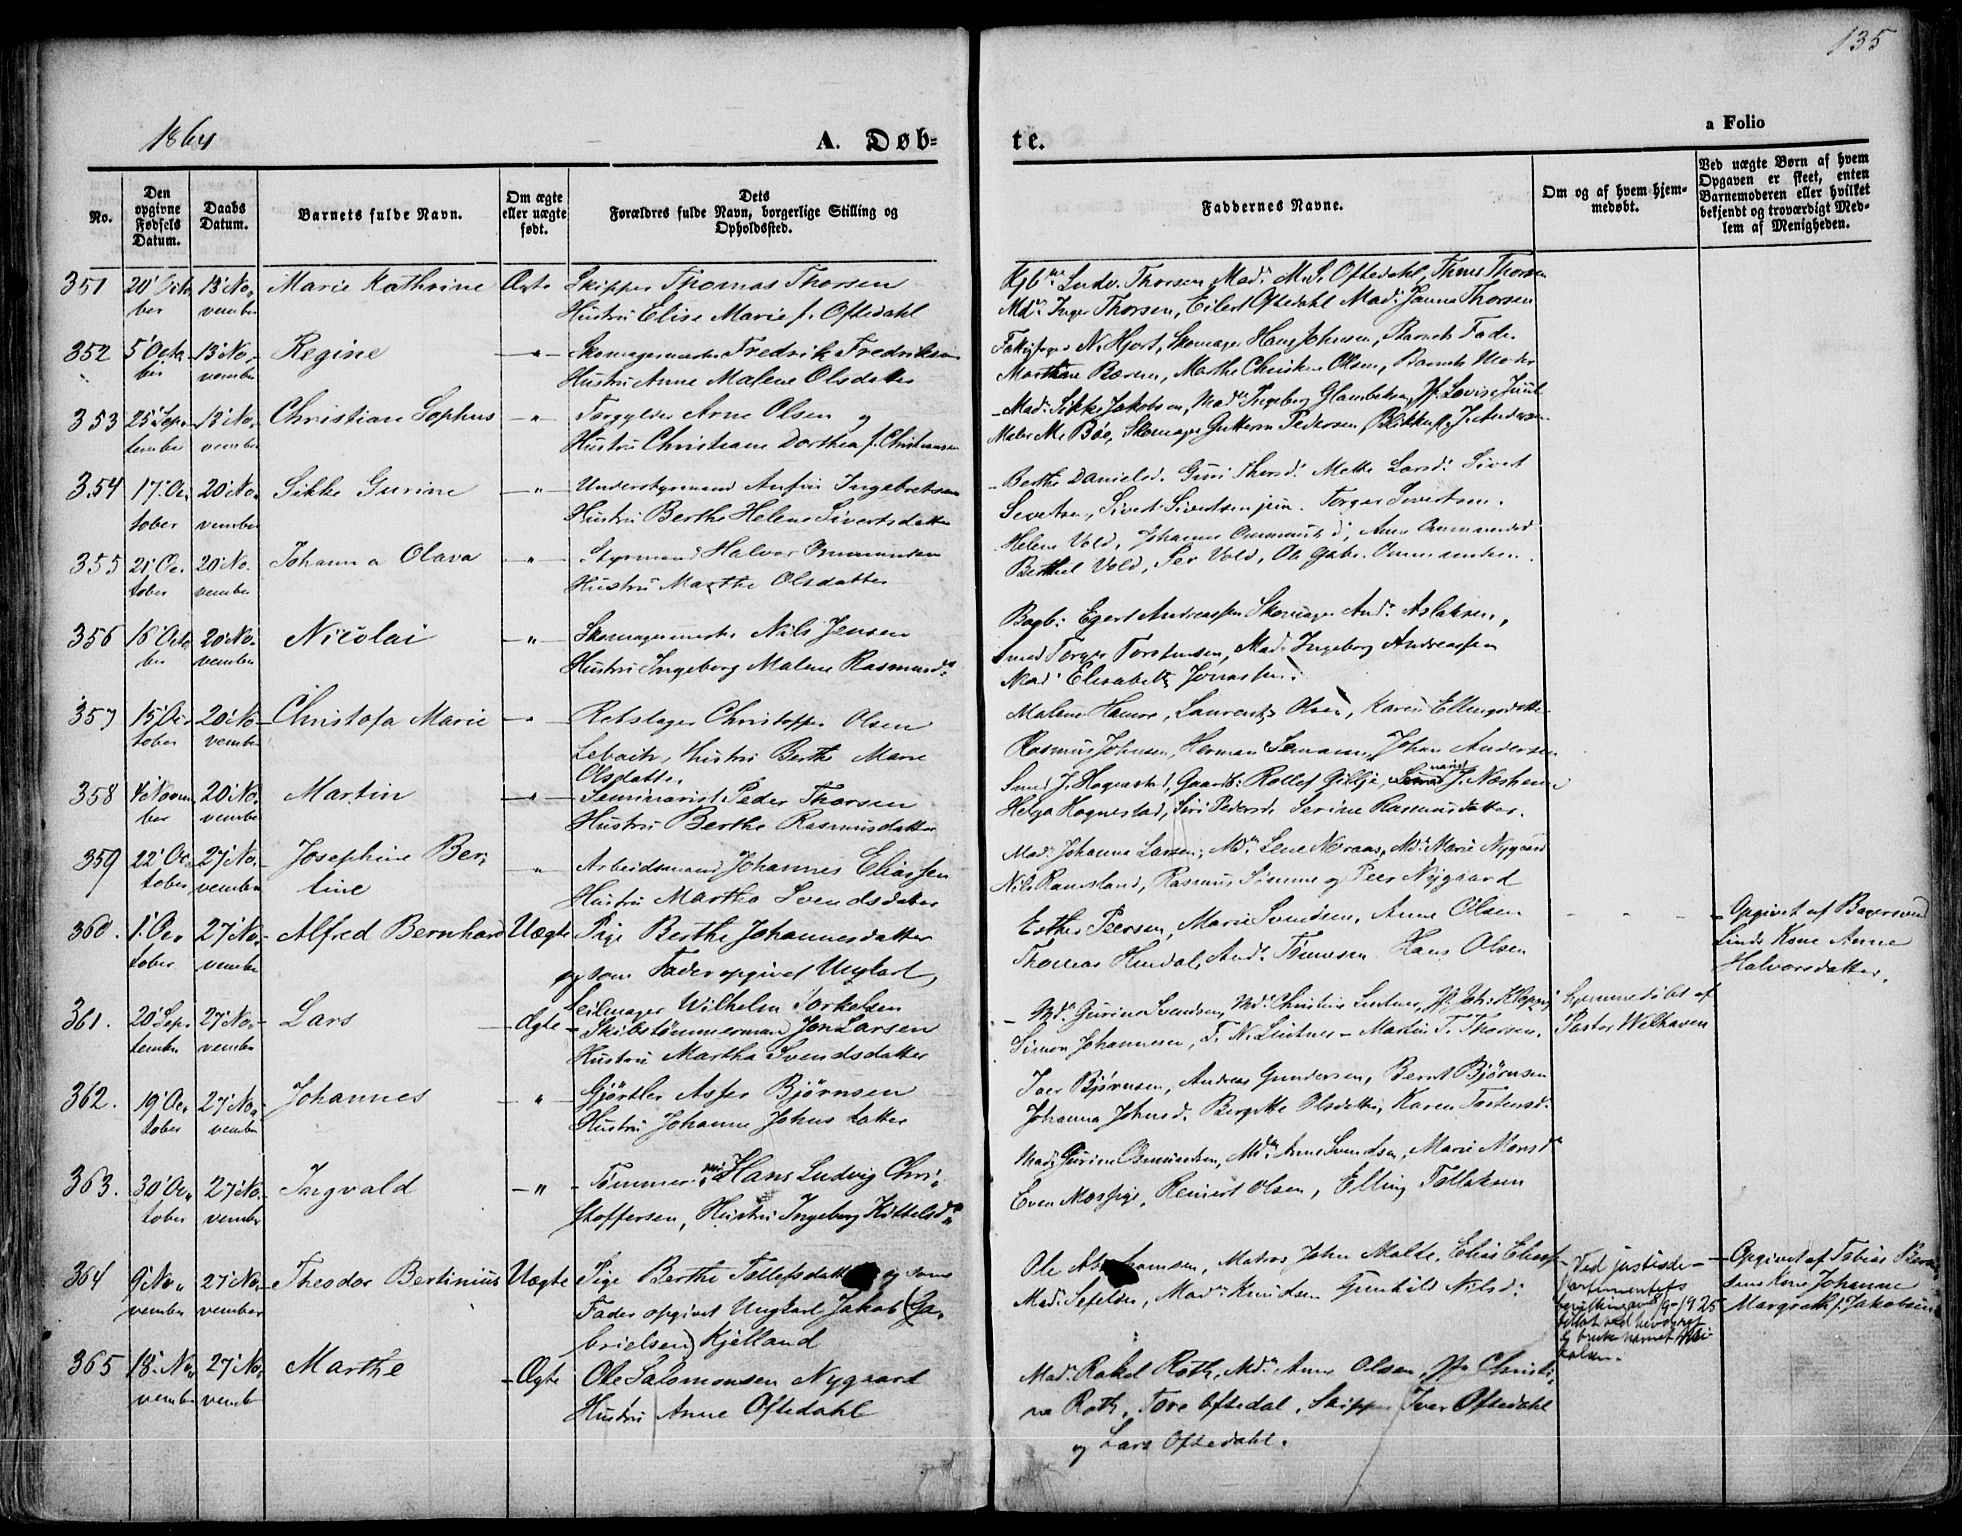 135
1864
A. Døb-
te.
a Folio
No.
Den opgivne Fødsels Datum.
Daabs Datum.
Barnets fulde Navn.
Om ægte eller uægte født.
Dets Forældres fulde Navn, borgerlige Stilling og Opholdssted.
Faddernes Navne.
Om og af hvem hjemmedøbt.
Ved uægte Børn af hvem Opgaven er skeet, enten Barnemoderen eller hvilket bekjendt og troværdigt Medlem af Menigheden.
351 20' Octo 13' No- Marie Kathrine Ægte Skipper Thomas Thorsen
ber vember Hustru Elise Marie f. Oftedahl
Ludv. Thorsen Mad: M. S. Oftedahl, Thms Thorsen
Inger Thorsen, Eilert Oftedahl Mad: Janna Thorsen
352 5' Octo 13' No- Regine -"- Skomagermester Fredrik Fredriksen
ber vember Hustru Anne Malene Olsdatter
N. Hjort, Skomager Hans Johnsen, Barnets Fader
Marthe Christine Olsen, Barnets Moder
353 25' Sep- 13' No- Christian Sophus -"- Forgylder Arne Olsen og
tember vember Hustru Christiane Dorthea f. Christiansen
Mad: Sikke Jakobsen, Mad: Ingeborg Jf. Lovise Juul
Maler M. Bøe, Skomager Guttorm Pedersen J. Andersen
354 17' Oc- 20' No- Sikke Gurine -"- Understyrmand Anfin Ingebretsen
tober vember Hustru Berthe Helene Sivertsdatter
Berthe Danielsd. Guri Thorsd: Mette Larsd: Sivert
Sivertsen, Sivert Sivertsen jun. Torger Sivertsen.
355 21' Oc- 20' No- Johanna Olava -"- Styrmand Halvor Ommundsen
tober vember Hustru Marthe Olsdatter
Helene Vold, Johanne Ommundsd, Anne Ommundsd
Berthel Vold, Per Vold, Ole Gabr. Ommundsen.
356 16' Octo 20' No- Nicolai -"- Skomagermester Nils Jensen
ber vember Hustru Ingeborg Malene Rasmusd:
Bagb: Egert Andreassen Skomager And: Aslaksen,
Smed Torger Torstensen, Mad: Ingeborg Andreassen
Mad: Elisabeth Jonassen.
357 15' Oc- 20' No- Christofa Marie -"- Rebslager Christoffer Olsen
tober vember Hustru Berthe Marie
Olsdatter
Malene Laurents Olsen, Karen Ellingsdatter
Rasmus Johnsen, Herman Johan Andersen
358 4' Novem- 20' No- Martin -"- Seminarist Peder Thorsen
ber vember Hustru Berthe Rasmusdatter
Smed J. Hognestad, Gaardb: Rollef Giklje, J. Næsheim
Helga Hognestad, Siri Pedersd. Serine Rasmusdatter.
359 22' Oc- 27' No- Josephine Ber- -"- Arbeidsmand Johannes Eliassen
tober vember tine Hustru Martha Svendsdatter
Mad: Johanna Larsen, Md: Lene Noraas, Md: Marie Nygaard
Nils Ramsland, Rasmus Simme og Peer Nygaard
360. 1' Oc- 27' No- Alfred Bernhard Uægte Pige Berthe Johannesdatter
tober vember og som Fader opgivet Ungkarl,
Seilmager Wilhelm Torkelsen
Esther Peersen, Marie Svendsen, Anne Olsen
Thomas And: Tønnesen Hans Olsen
Opgivet af
Kone Anne
Halvorsdatter.
361. 20' Sep- 27' No- Lars Ægte Skibstømmermand Jon Larsen
tember vember Hustru Martha Svendsdatter
Md: Gurine Svendsen, Md: Christine
Simon Johannesen, T. N. Lintner - Martin T. Thorsen.
Hjemmedøbt af
Pastor Welhaven
362. 19' Oc- 27' No- Johannes -"- Gjørtler Asser Bjørnsen
tober vember Hustru Johanne Johnsdatter
Iver Bjørnsen, Andreas Gundersen, Bernt Bjørnsen
Johanna Johnsd. Bergitte Olsdatter, Karen Torstensd.
363. 30' Oc- 27' No- Ingvald -"- Tømmermd: Hans Ludvig Chri-
tober vember stoffersen, Hustru Ingeborg Kittelsd:
Mad: Gurine Osmundsen, Md: Anne Svendsen, Marie Monsd:
Even Mossige, Reinert Olsen, Elling Tollaksen
364 9' No- 27' No- Theodor Bertinius Uægte Pige Berthe Tollefsdatter og som
vember vember Fader opgivet Ungkarl Jakob (Ga-
brielsen) Kjelland
Ole Abrahamsen, Matros John Malde, Elias Eliass
Mad: Mad: Knudsen Gunhild Nilsd:
Ved justisde-
partementets
bevilling av 8/9-1925
tillat ved nevøret
å bruke navnet
Opgivet af Tobias
sens Kone Johanne
Margreth f. Jakobsen
365 18' No- 27' No- Marthe Ægte Ole Salomonsen Nygaard
vember vember Hustru Anne Oftedahl
Mad: Rakel Roth, Md: Anne Olsen, Jfr Christi-
ne Roth, Tore Oftedal, Skipper Iver Oftedahl
og Lars Oftedahl.